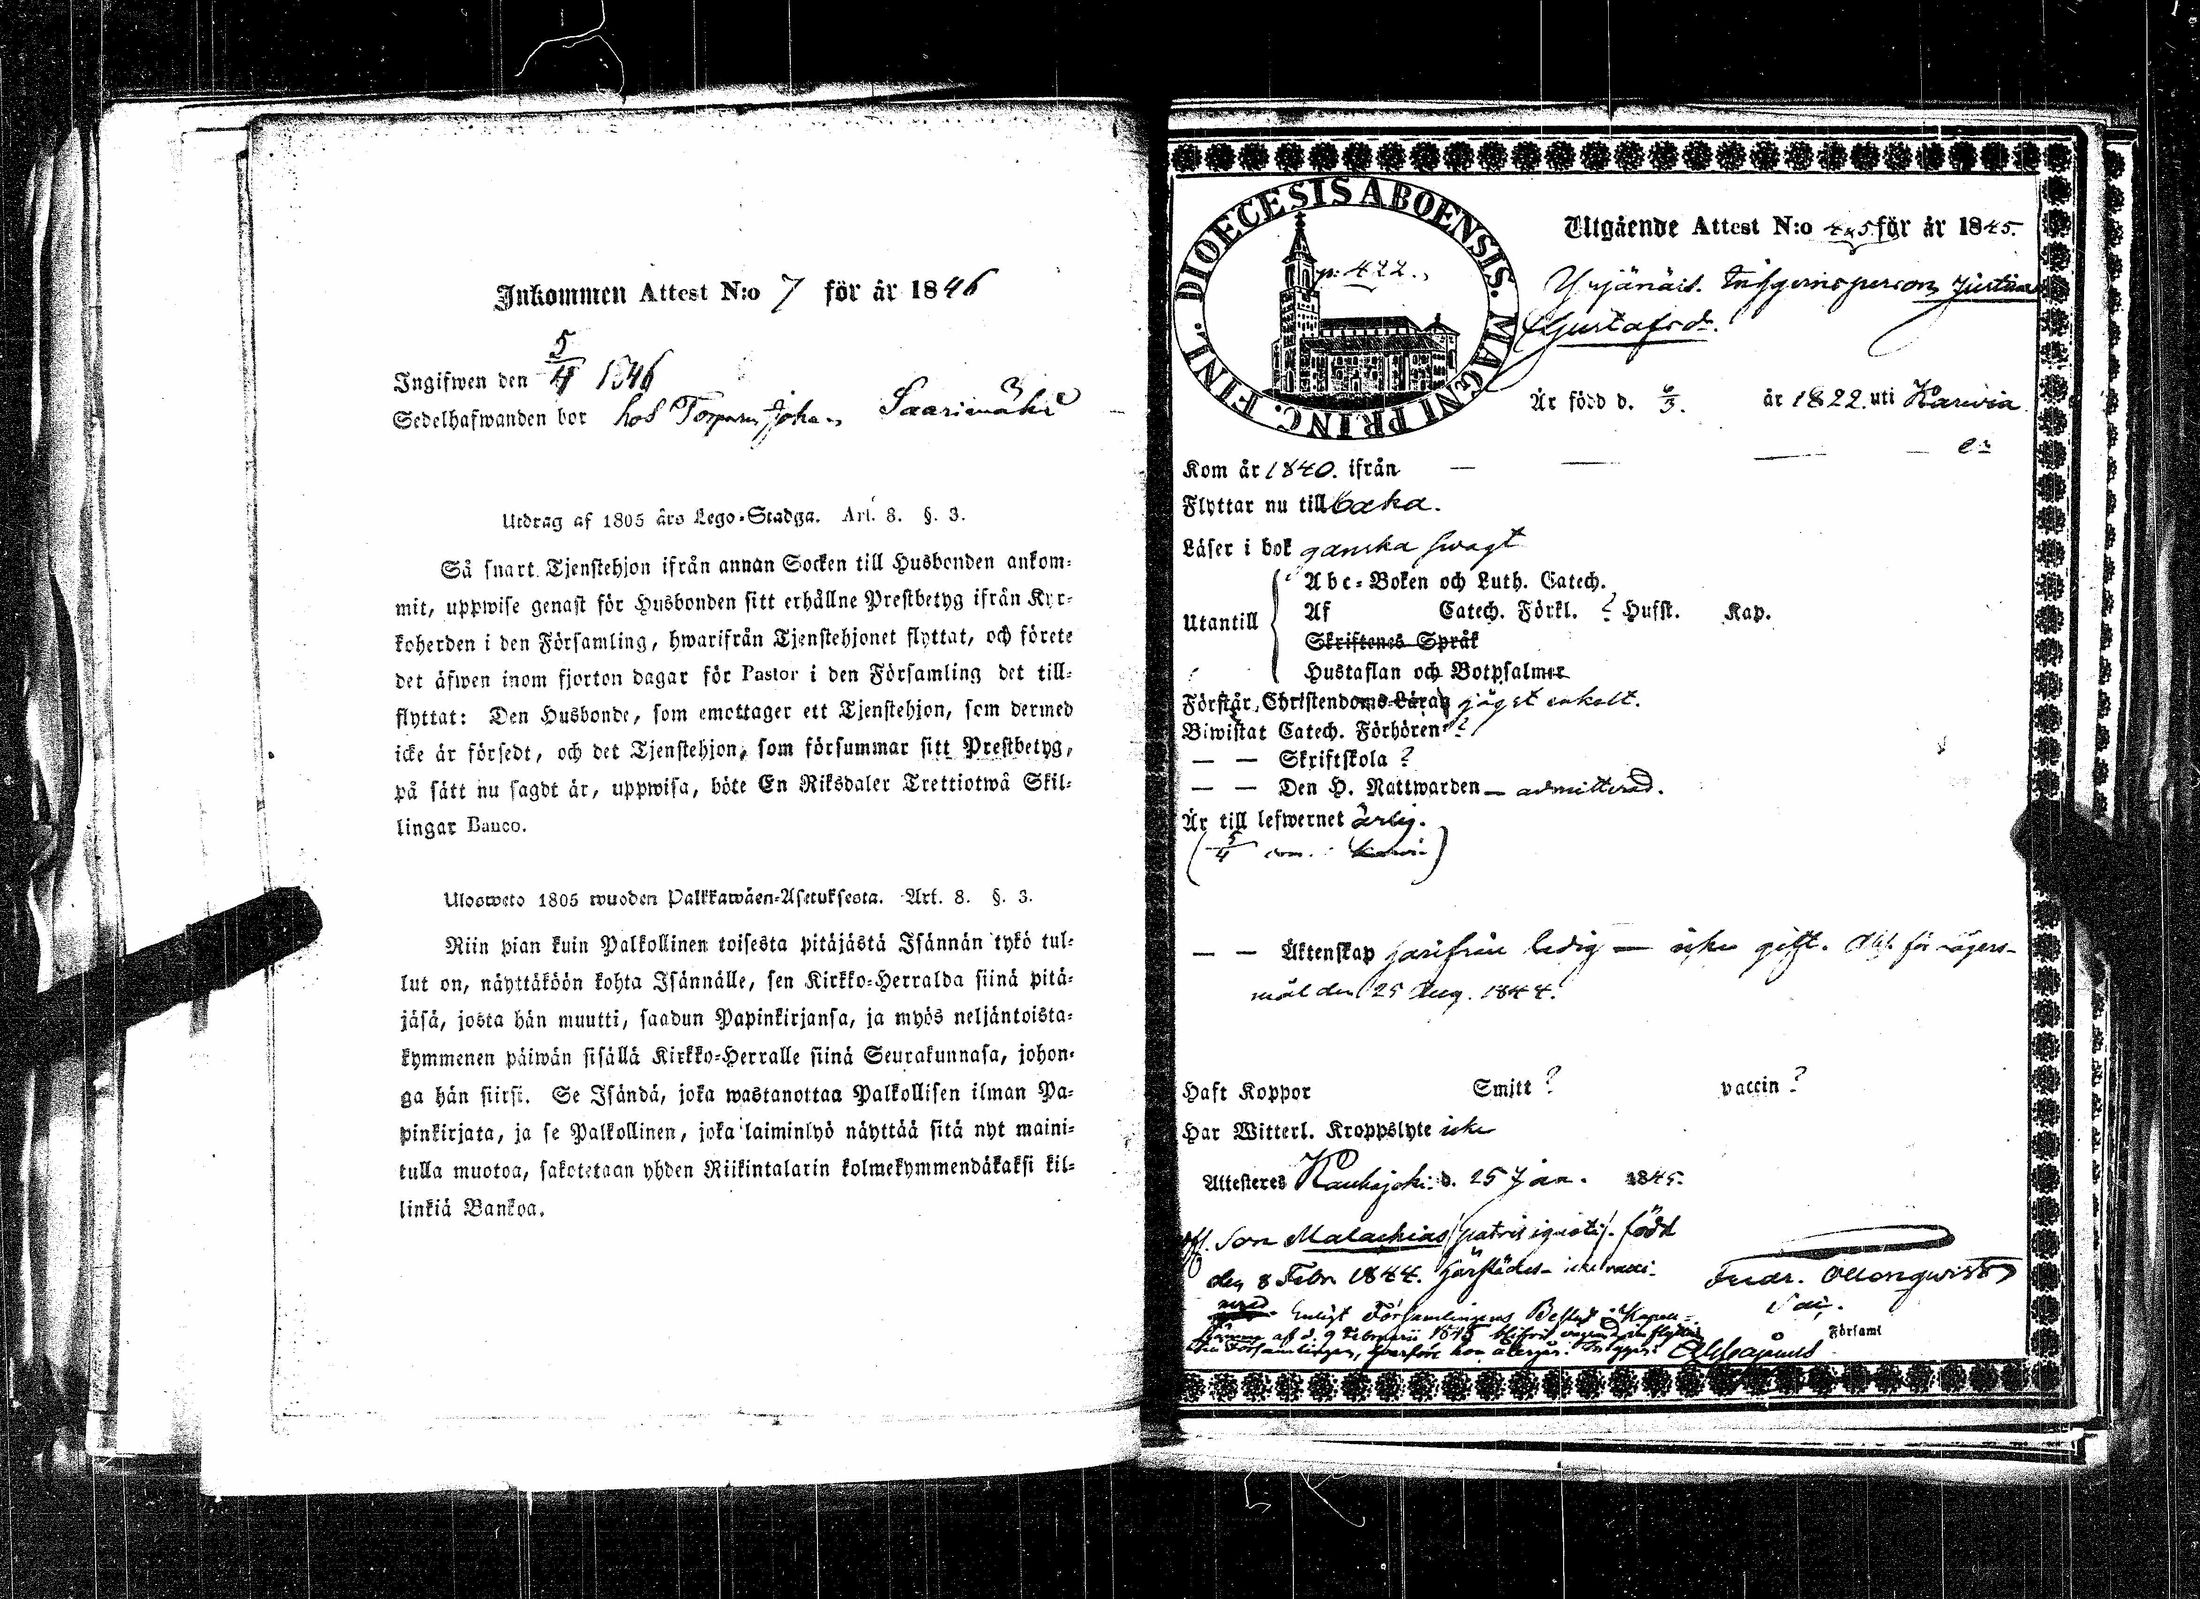 Inkommen Attest N:o 7 för år 1846
Ingifwen den 5/4 1846
Sedelhafwanden bor hos Torparn Johan Saarimäki
Utdrag af 1805 års Lego-Stadga. Art. 8. §. 3.
Så snart Tjenstehjon ifrån annan Socken till Husbonden ankom-
mit, uppwise genast för Husbonden sitt erhållne Prestbetyg ifrån Kyr-
koherden i den Församling, hwarifrån Tjenstehjonet flyttat, och förete
det äfwen inom fjorton dagar för Pastor i den Församling det till-
flyttat: Den Husbonde, som emottager ett Tjenstehjon, som dermed
icke är försedt, och det Tjenstehjon, som försummar sitt Prestbetyg,
på sätt nu sagdt är, uppwisa, böte En Riksdaler Trettiotwå Skil-
lingar Banco.
Ulosweto 1805 wuoden Palkkawäen-Asetuksesta. Art. 8. §. 3.
Niin pian kuin Palkollinen toisesta pitäjästä Isännän tykö tul-
lut on, näyttäköön kohta Isännälle, sen Kirkko-Herralda siinä pitä-
jäsä, josta hän muutti, saadun Papinkirjansa, ja myös neljäntoista-
kymmenen päiwän sisällä Kirkko-Herralle siinä Seurakunnasa, johon-
ga hän siirsi. Se Isändä, joka wastanottaa Palkollisen ilman Pa-
pinkirjata, ja se Palkollinen, joka laiminlyö näyttää sitä nyt maini-
tulla muotoa, sakotetaan yhden Riikintalarin kolmekymmendäkaksi kil-
linkiä Bankoa.
DIOECESIS ABOENSIS. MAGNI PRINC. FINL.
p. 422.
Utgående Attest N:o 4 & 5 för år 1845.
Yrjänäis. Inhysesperson Justina
Gustafsd.
Är född d. 6/3. år 1822. uti Karvia
Kom år 1840. ifrån — — — —
Flyttar nu tillbaka.
Läser i bok ganska swagt
Utantill
Abc-Boken och Luth. Catech.
Af Catech. Förkl. ? Hufst. Kap.
Skriftenes Språk
Hustaflan och Botpsalmer
Förstår Christendoms-Läran högst enkelt.
Biwistat Catech. Förhören ?
— — Skriftskola ?
— — Den H. Nattwarden — admitterad.
Är till lefwernet ärlig.
(5/4
— — Äktenskap härifrån ledig — icke gift. Abs. för lägers-
mål den 25 Aug. 1844.
Haft Koppor Smitt ? vaccin ?
Har Witterl. Kroppslyte icke
Attesteres Kauhajoki d. 25 Jan. 1845.
Son Malachias (patris ignoti). född
den 8 Febr. 1844. härstädes — icke vacci-
nerad
Enligt Församlingens Beslut i
af d. 9 Februarii 1845
Församlingen, hwarföre hon återgår.
Fredr. Monqwist
Församl